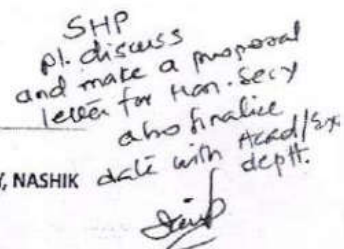 SHP
pl. discuss
and make a proposal
letter for Hon. Secy
also finalise
date with Acad/Exa
deptt.
Y, NASHIK